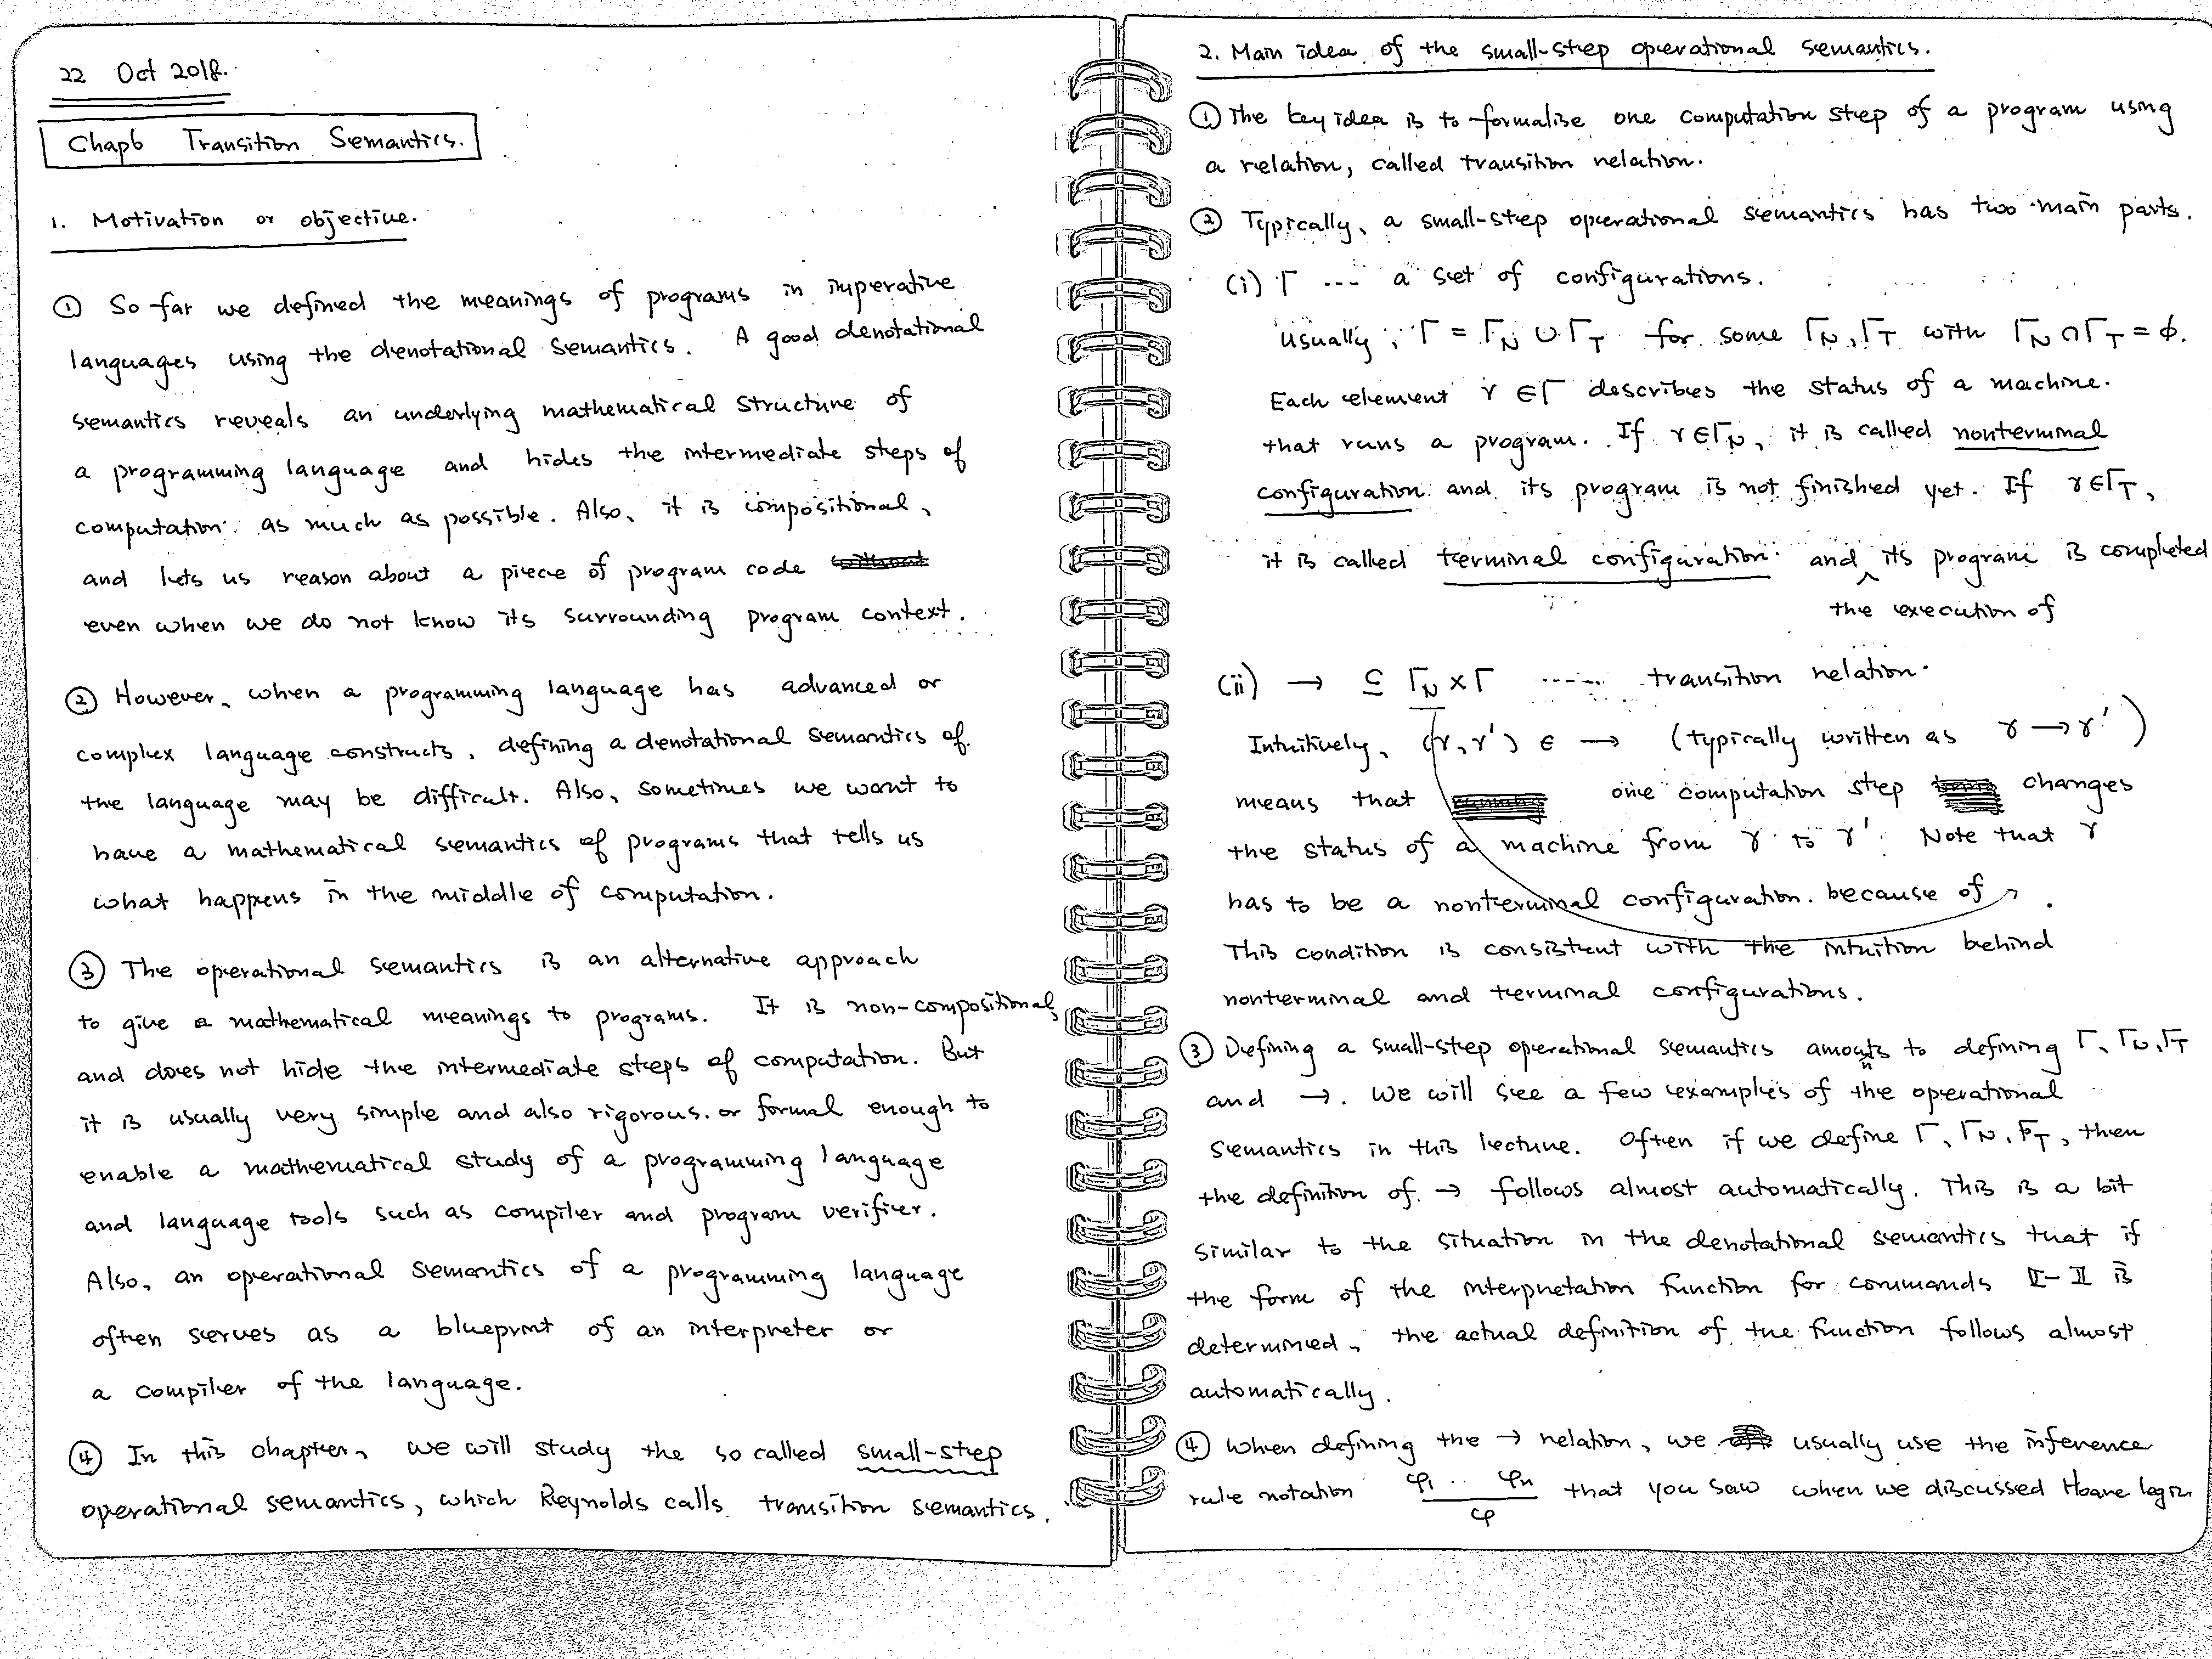 22 Oct 2018.
Chap6 Transition Semantics.
1. Motivation or objective.
① So far we defined the meanings of programs in imperative
languages using the denotational semantics. A good denotational
semantics reveals an underlying mathematical structure of
a programming language and hides the intermediate steps of
computation as much as possible. Also, it is compositional,
and lets us reason about a piece of program code
even when we do not know its surrounding program context.
② However, when a programming language has advanced or
complex language constructs, defining a denotational semantics of
the language may be difficult. Also, sometimes we want to
have a mathematical semantics of programs that tells us
what happens in the middle of computation.
③ The operational semantics is an alternative approach
to give a mathematical meanings to programs. It is non-compositional,
and does not hide the intermediate steps of computation. But
it is usually very simple and also rigorous or formal enough to
enable a mathematical study of a programming language
and language tools such as compiler and program verifier.
Also, an operational semantics of a programming language
often serves as a blueprint of an interpreter or
a compiler of the language.
④ In this chapter, we will study the so called small-step
operational semantics, which Reynolds calls transition semantics.
2. Main idea of the small-step operational semantics.
① The key idea is to formalise one computation step of a program using
a relation, called transition relation.
② Typically, a small-step operational semantics has two main parts.
(i) Γ ... a set of configurations.
usually, Γ = Γ_N ∪ Γ_T for some Γ_N, Γ_T with Γ_N ∩ Γ_T = ϕ.
Each element γ ∈ Γ describes the status of a machine.
that runs a program. If γ ∈ Γ_N, it is called nonterminal
configuration and its program is not finished yet. If γ ∈ Γ_T,
it is called terminal configuration and its program is completed
the execution of
(ii) → ⊆ Γ_N × Γ ...... transition relation.
Intuitively, (γ, γ') ∈ → (typically written as γ → γ')
means that one computation step changes
the status of a machine from γ to γ'. Note that γ
has to be a nonterminal configuration because of .
This condition is consistent with the intuition behind
nonterminal and terminal configurations.
③ Defining a small-step operational semantics amounts to defining Γ, Γ_N, Γ_T
and →. We will see a few examples of the operational
semantics in this lecture. Often if we define Γ, Γ_N, Γ_T, then
the definition of → follows almost automatically. This is a bit
similar to the situation in the denotational semantics that if
the form of the interpretation function for commands ⟦-⟧ is
determined, the actual definition of the function follows almost
automatically.
④ When defining the → relation, we usually use the inference
rule notation φ₁ .. φₙ / φ that you saw when we discussed Hoare logic.